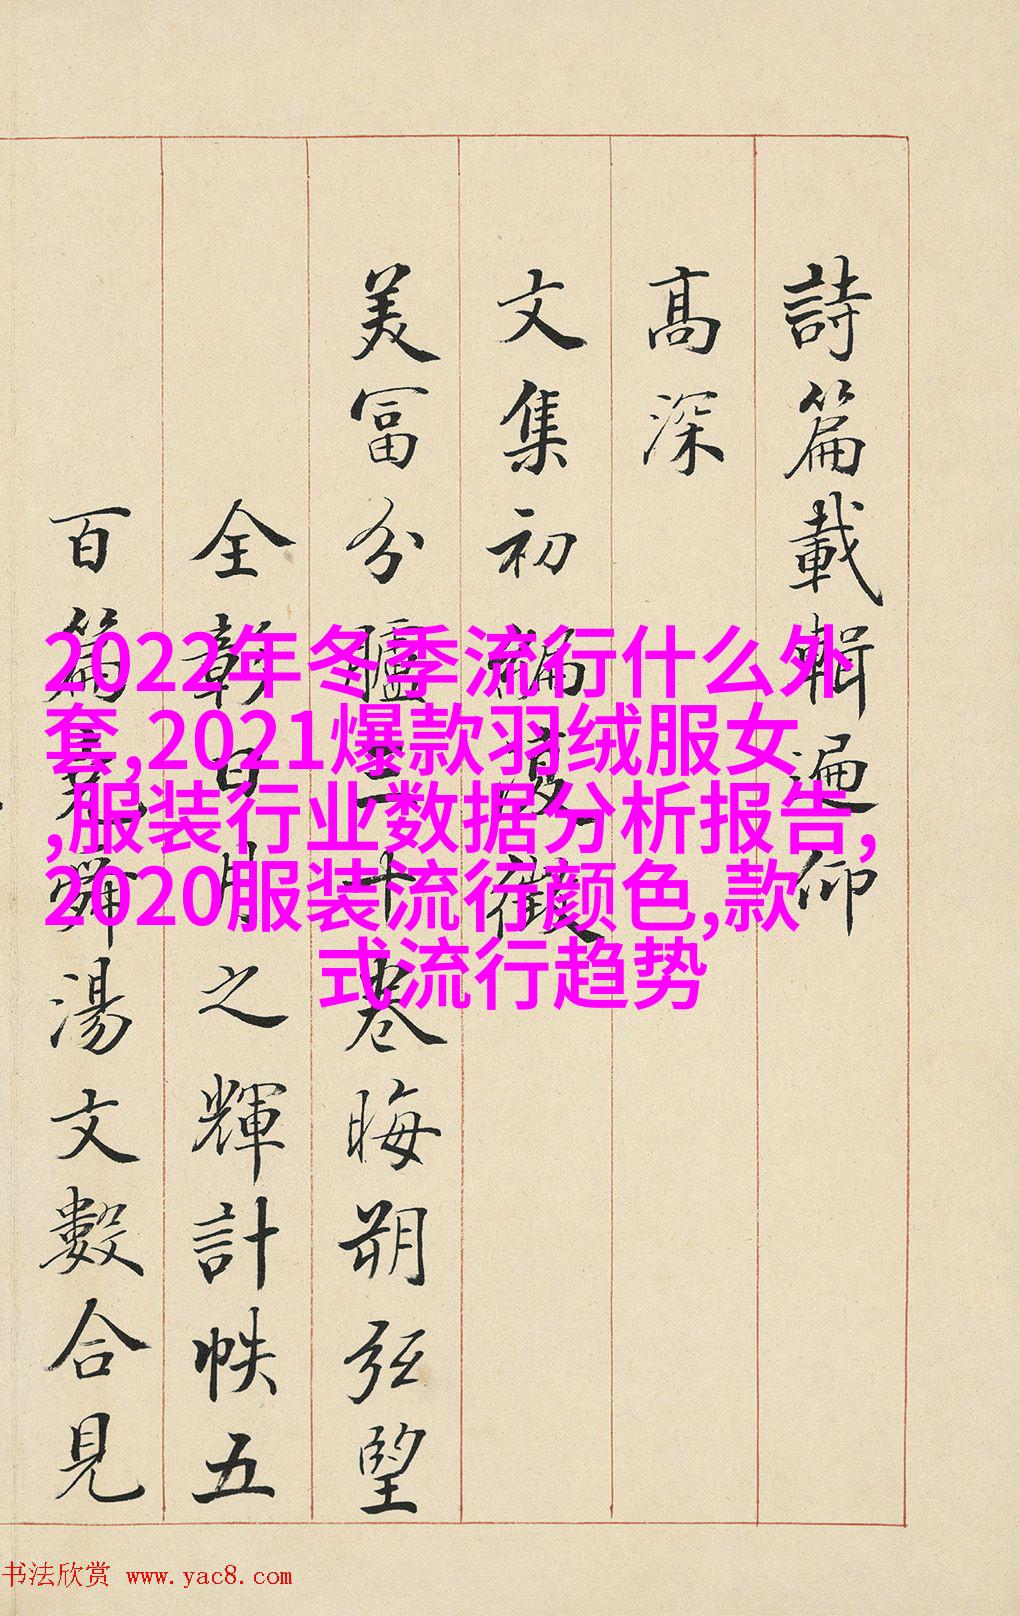 詩篇載輯遍仰
髙深
文集初編復徵
美冨分臚三十卷晦朔弦望
全彰日月之輝計帙五
百篇堯舜湯文數合見
2022年冬季流行什么外
套,2021爆款羽绒服女
,服装行业数据分析报告,
2020服装流行颜色,款
式流行趋势
书法欣赏 www.yac8.com